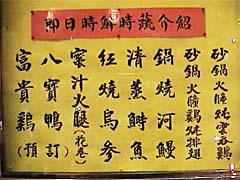 即日時鮮時蔬介紹
砂鍋火膧炖雲吞雞
砂鍋火膧雞炖排翅
鍋燒河鰻
清蒸鰣魚
紅燒烏參
蜜汁火腿(花卷)
八寶鴨
富貴雞
(預訂)